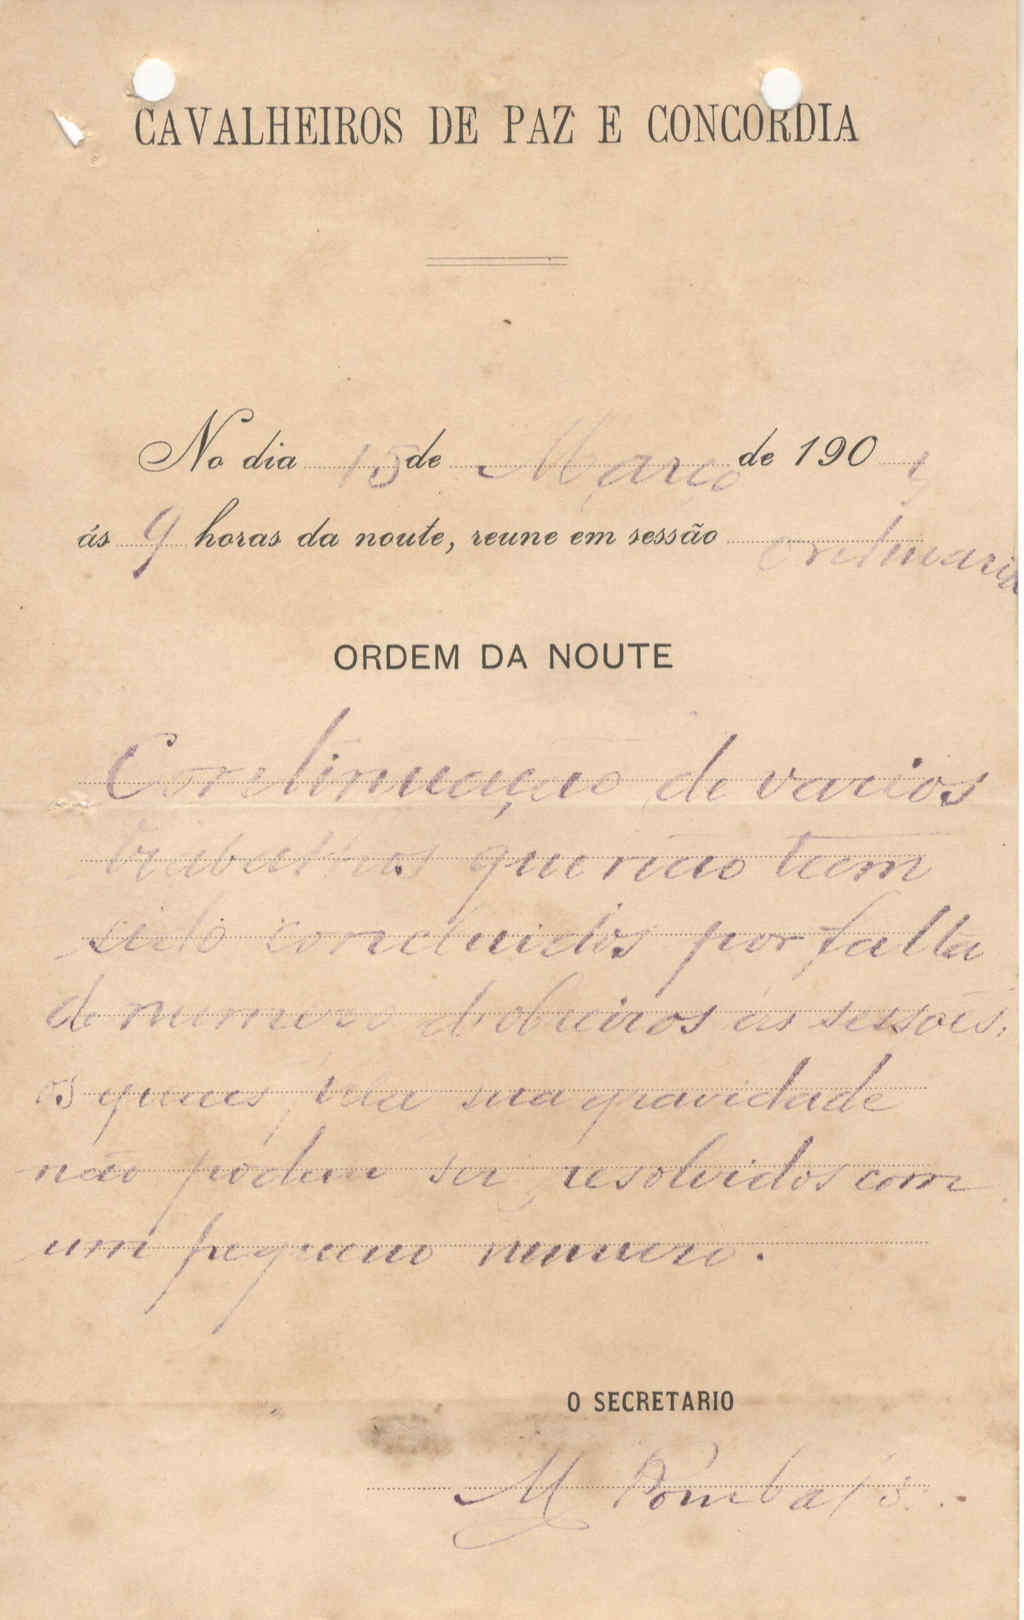 CAVALHEIROS DE PAZ E CONCORDIA
No dia 15 de Março de 190
ás 9 horas da noute, reune em sessão ordinaria
ORDEM DA NOUTE
Continuação de varios
trabalhos que não teem
sido concluidos por falta
de numero d'obreiros ás sessões,
os quaes pela sua gravidade
não pódem ser resolvidos com
um pequeno numero.
O SECRETARIO
M Pombal